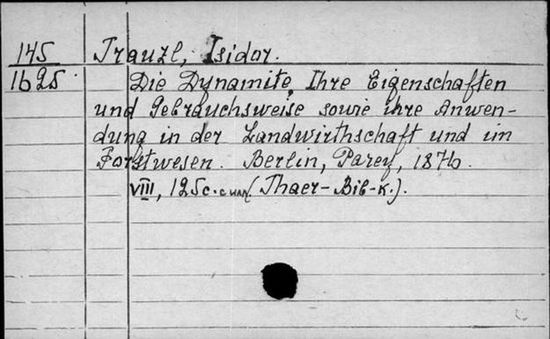 145 Trauzl, Isidor.
1625. Die Dynamite, Ihre Eigenschaften
und Gebrauchsweise sowie ihre Anwen-
dung in der Landwirthschaft und im
Forstwesen. Berlin, Parey, 1876.
VIII, 125 c. (Thaer-Bib-k.).